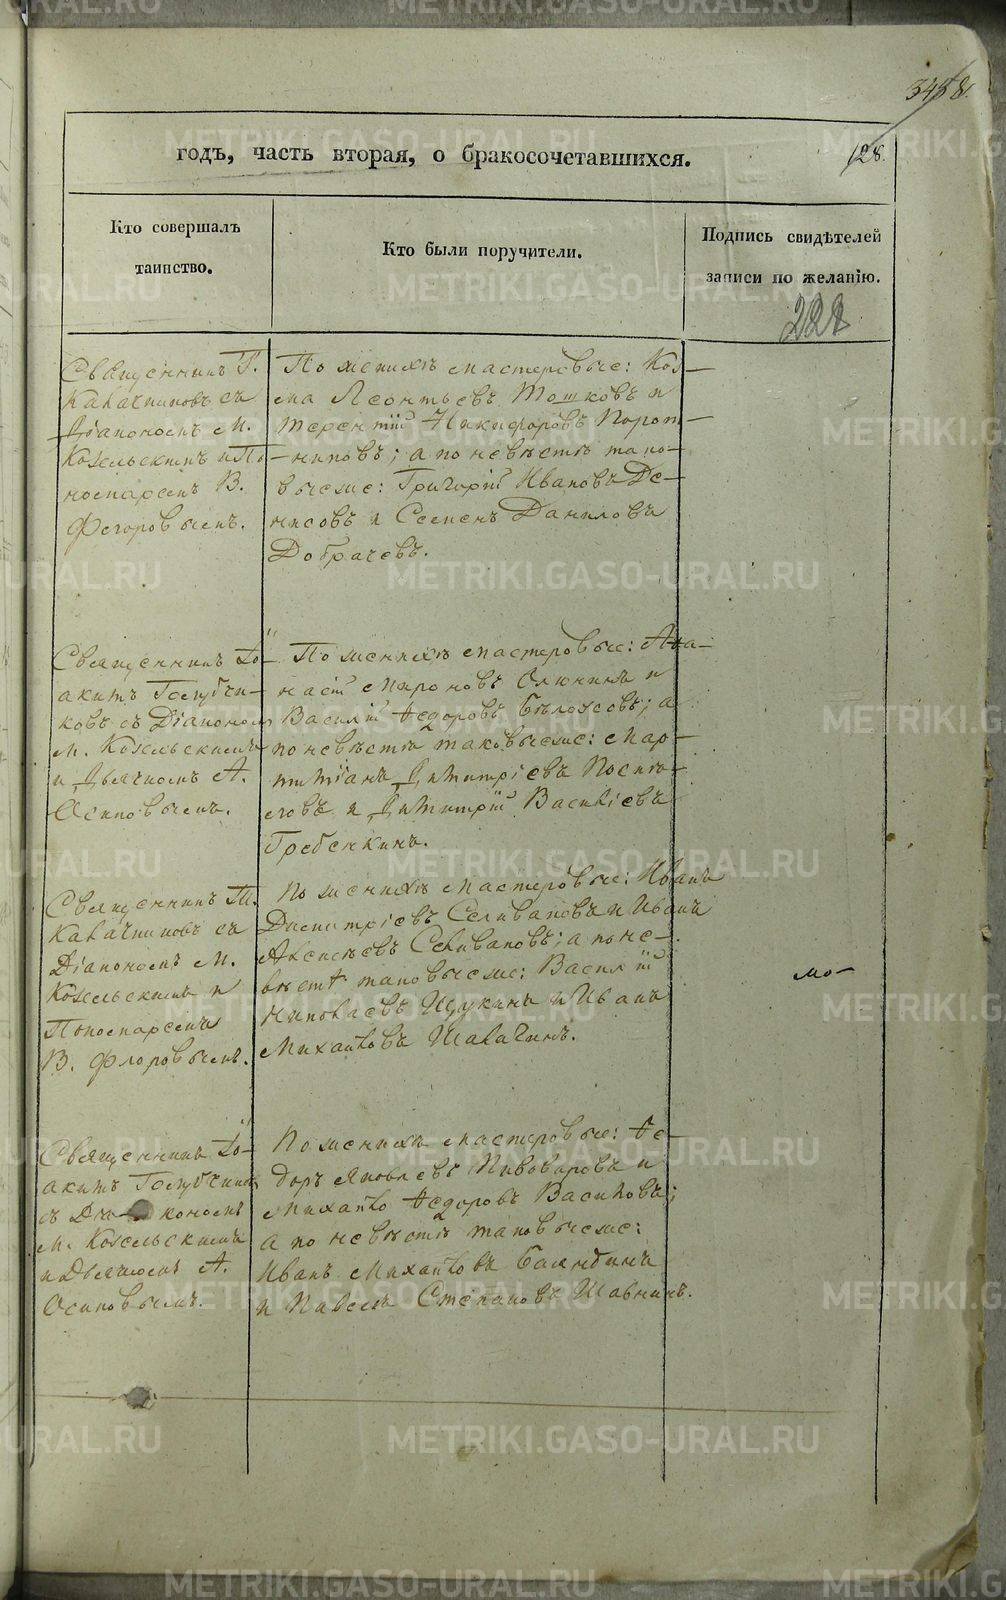 128.
годъ, часть вторая, о бракосочетавшихся.
Кто совершалъ
таинство.
Кто были поручители.
Подпись свидѣтелей
записи по желанію.
222
Священникъ
Калачниковъ съ
Діакономъ М.
Козельскимъ и По-
номаремъ В.
Флоровымъ.
По женихѣ мастеровые: Коз-
ма Леонтьевъ Тошковъ и
Терентій Никифоровъ Корот-
никовъ; а по невѣстѣ тако-
выеже: Григорій Ивановъ Де-
нисовъ и Семенъ Даниловъ
Добрачевъ.
Священникъ Іо-
акимъ
ковъ съ Діакономъ
М. Козельскимъ
и Дьячкомъ А.
Осиповымъ.
По женихѣ мастеровые: Ана-
ній Мироновъ Олюнинъ и
Василій Ѳедоровъ Бѣлоусовъ; а
по невѣстѣ таковыеже: Мар-
тиміанъ Димитріевъ
и Димитрій Василіевъ
Гребенкинъ.
Священникъ
Калачниковъ съ
Діакономъ М.
Козельскимъ и
Пономаремъ
В. Флоровымъ.
По женихѣ мастеровые: Иванъ
Димитріевъ Селивановъ и Иванъ
Алексѣевъ Селивановъ; а по не-
вѣстѣ таковыеже: Василій
Николаевъ Щукинъ и Иванъ
Михайловъ Шалагинъ.
Священникъ Іо-
акимъ
съ Діакономъ
М. Козельскимъ
и Дьячкомъ А.
Осиповымъ.
По женихѣ мастеровые: Ѳе-
доръ Яковлевъ Пивоваровъ и
Михайло Ѳедоровъ Василовъ;
а по невѣстѣ таковыеже:
Иванъ Михайловъ Баяндинъ
и Павелъ Степановъ Шавнинъ.
METRIKI.GASO-URAL.RU